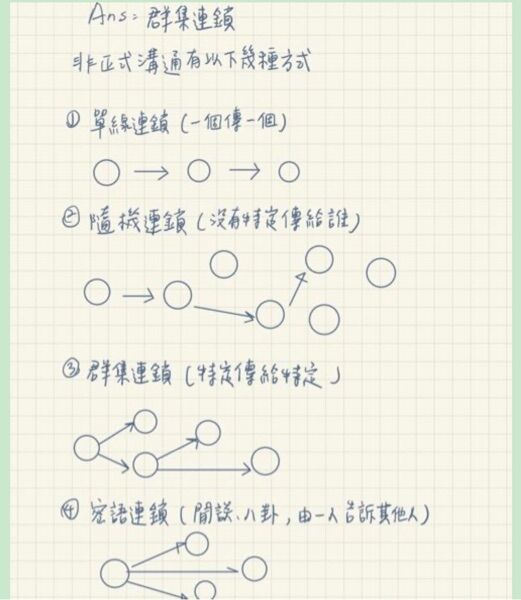 Ans：群集連鎖
非正式溝通有以下幾種方式
① 單線連鎖（一個傳一個）
② 隨機連鎖（沒有特定傳給誰）
③ 群集連鎖（特定傳給特定）
④ 密語連鎖（閒談、八卦，由一人告訴其他人）